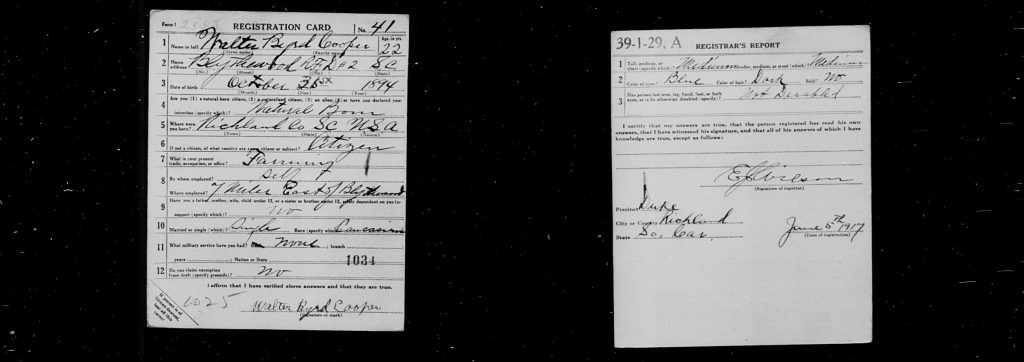 Form 1
REGISTRATION CARD No. 41
1 Name in full Walter Byrd Cooper Age, in yrs. 22
(Given name) (Family name)
2 Home address Blythewood R.F.D #2 SC
(No.) (Street) (City) (State)
3 Date of birth October 25st 1894
(Month) (Day) (Year)
4 Are you (1) a natural-born citizen, (2) a naturalized citizen, (3) an alien, (4) or have you declared your
intention (specify which)? Natural Born
5 Where were you born? Richland Co SC USA
(Town) (State) (Nation)
6 If not a citizen, of what country are you a citizen or subject? Citizen
7 What is your present trade, occupation, or office? Farming
8 By whom employed? Self
Where employed? 7 Miles East of Blythewood
9 Have you a father, mother, wife, child under 12, or a sister or brother under 12, solely dependent on you for
support (specify which)? No
10 Married or single (which)? Single Race (specify which)? Caucasian
11 What military service have you had? None ; branch
years ; Nation or State 1034
12 Do you claim exemption from draft (specify grounds)? No
I affirm that I have verified above answers and that they are true.
1025
Walter Byrd Cooper
(Signature or mark)
39-1-29, A REGISTRAR'S REPORT
1 Tall, medium, or short (specify which)? Medium Slender, medium, or stout (which)? Medium
2 Color of eyes? Blue Color of hair? Dark Bald? No
3 Has person lost arm, leg, hand, foot, or both eyes, or is he otherwise disabled (specify)? Not Disabled
I certify that my answers are true, that the person registered has read his own
answers, that I have witnessed his signature, and that all of his answers of which I have
knowledge are true, except as follows:
E J Wilson
(Signature of registrar)
Precinct Duke
City or County Richland
State So, Car.
June 5th 1917
(Date of registration)